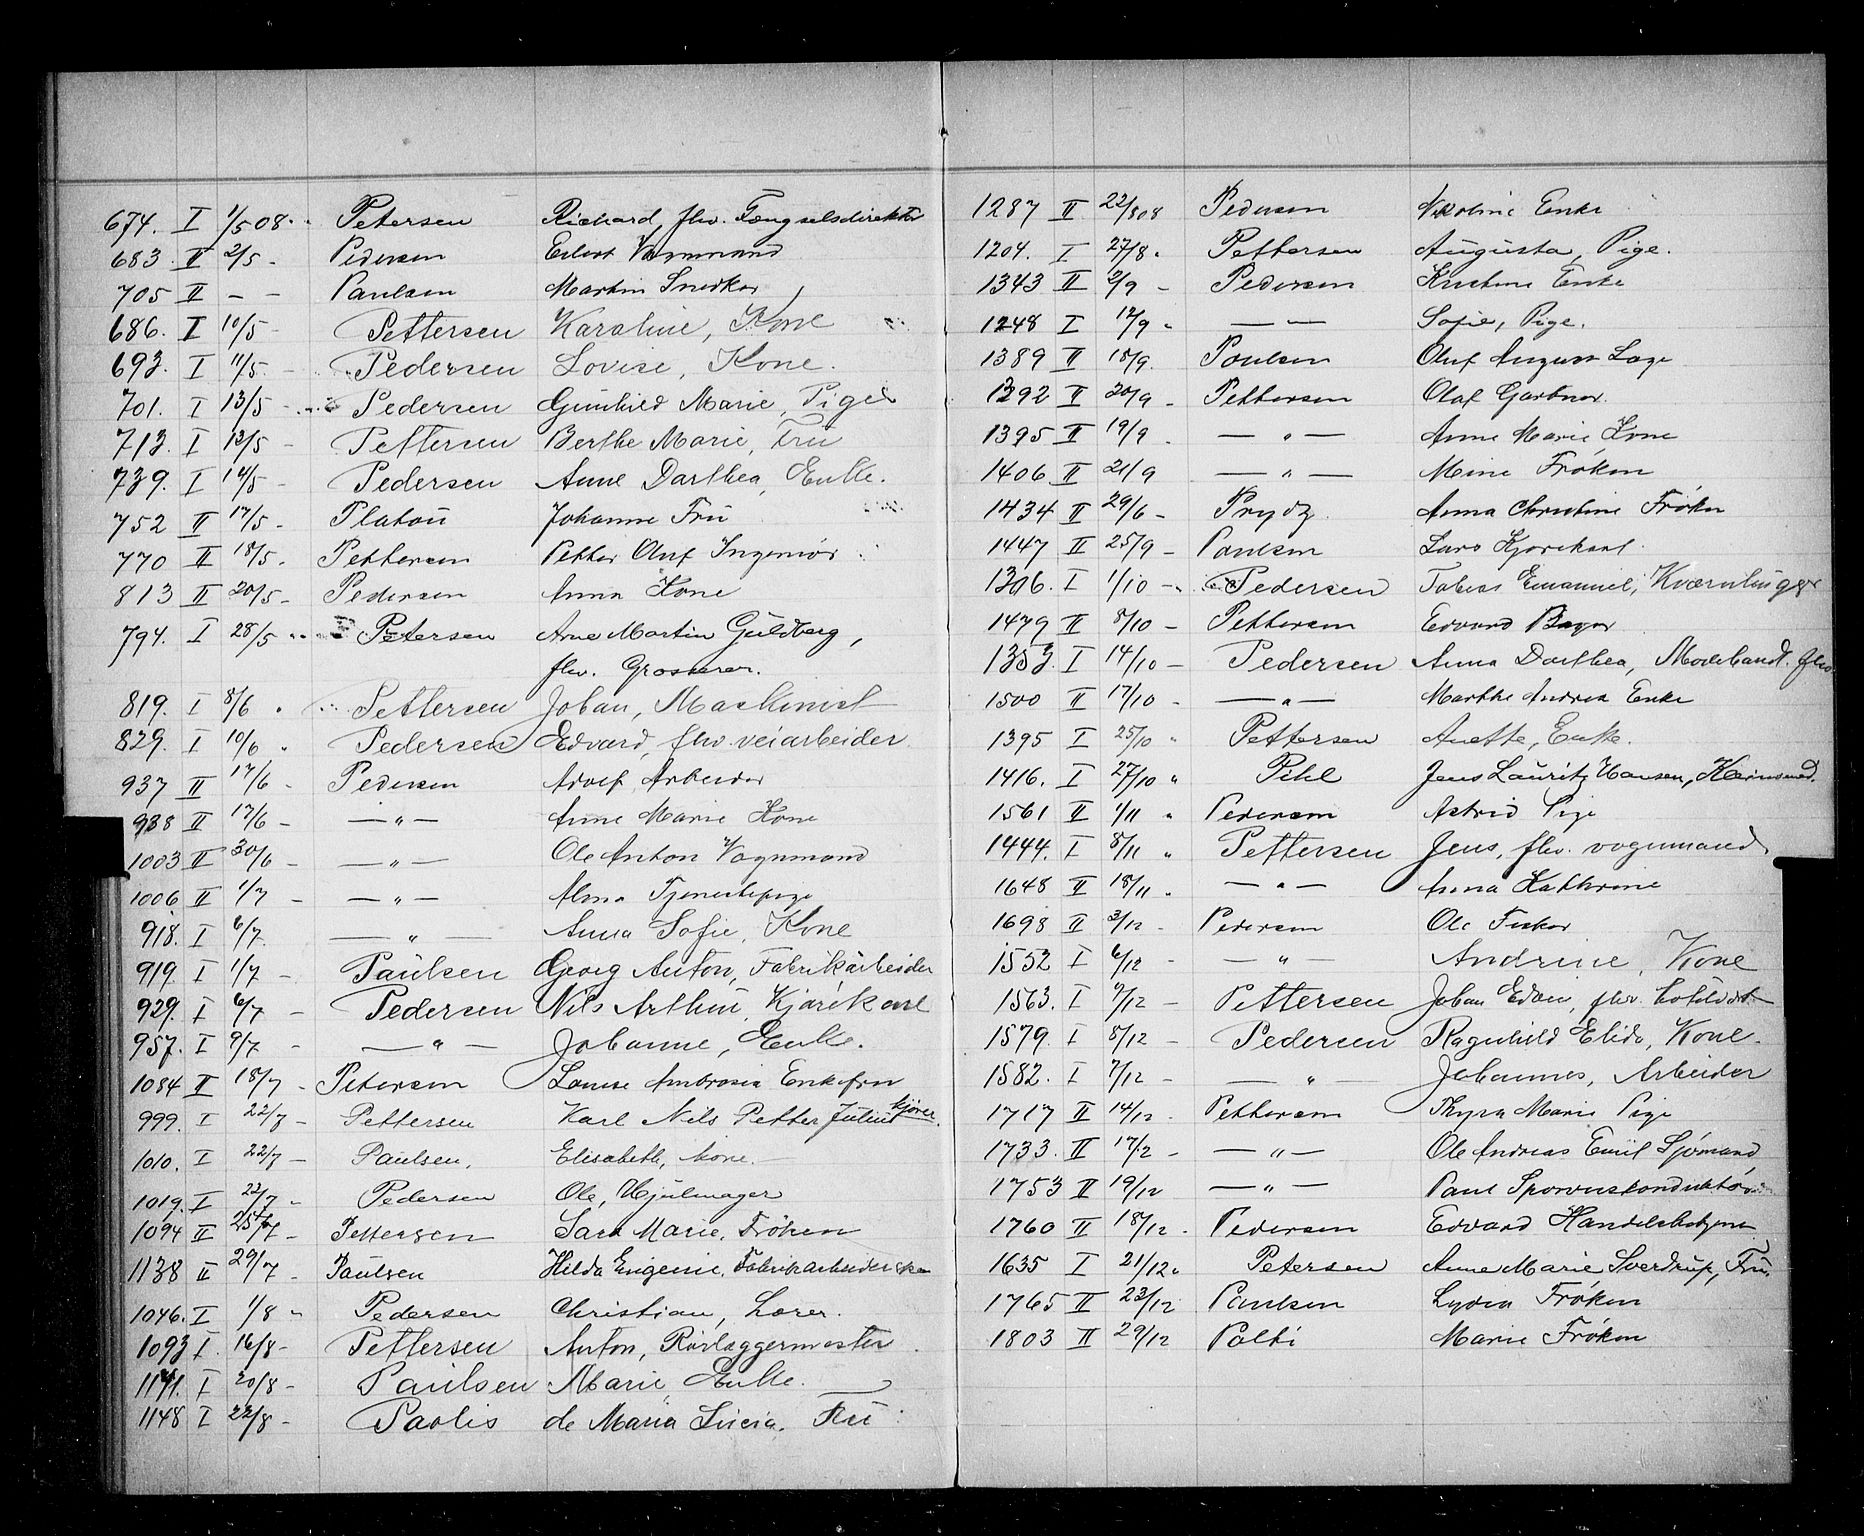 674. I 1/5 08. Petersen Richard, fhv. Fængselsdirektør
683 II 2/5 - Pedersen Eilert Vognmand
705 II - - Paulsen Martin Snedker
686. I 10/5 - Pettersen Karoline, Kone
693. I 11/5 - Pedersen Lovise, Kone.
701. I 13/5 - Pedersen Gunhild Marie, Pige
713. I 13/5 - Pettersen Berthe Marie, Fru
739. I 14/5 - Pedersen Anne Darthea, Enke.
752 II 17/5 - Platou Johanne Fru
770 II 18/5 - Pettersen Petter Oluf Ingeniør
813 II 20/5 - Pedersen Anna Kone
794. I 28/5 Petersen Arne Martin Guldberg,
fhv. Grosserer.
819. I 8/6 Pettersen Johan, Maskinist
829. I 10/6 Pedersen Edvard, fhv. veiarbeider
937 II 17/6 - Pedersen Adolf Arbeider
938 II 17/6 - — „ — Anne Marie Kone
1003 II 30/6 - — „ — Ole Anton Vognmand
1006 II 1/7 - — „ — Alma Tjenestepige
918. I 6/7. — „ — Anna Sofie, Kone
919. I 1/7 - Paulsen Georg Anton, Fabrikarbeider
929. I 6/7 - Pedersen Nils Arthur, Kjørekarl
957. I 9/7 - — „ — Johanne, Enke.
1084 II 18/7 - Petersen Louise Ambrosia Enkefru
999. I 22/7 - Pettersen Karl Nils Petter Julius kjører.
1010. I 22/7 - Paulsen. Elisabeth, kone.
1019. I 22/7 - Pedersen Ole, Hjulmager
1094 II 25/7 - Pettersen Sara Marie. Frøken
1138 II 29/7 - Paulsen Hilda Eugenie. Fabrikarbeiderske
1046. I 1/8 „ Pedersen Christian, Lærer.
1093 I. 16/8 - Pettersen Anton, Rørlæggermester
1141. I 20/8 - Paulsen Marie, Enke.
1148 I 22/8 - Paolis de Maria Lucia. Fru
1287 II 22/8 08 Pedersen Nikoline Enke
1204. I 27/8 „ Pettersen Augusta, Pige.
1343 II 2/9 - Pedersen Kristine Enke
1248 I 12/9 „ — „ — Sofie, Pige.
1389 II 18/9. Poulsen Oluf August Lage
1392 II 20/9 - Pettersen Olaf Gartner.
1395 II 19/9 . — „ — Anne Marie, Kone
1406 II 21/9 — „ — Mine Frøken
1434 II 29/6 - Prydz Anna Christine Frøken
1447 II 25/9 - Paulsen Lars Kjørekarl
1306. I 1/10 - Pedersen Tobias Emanuel, Kværnhugger
1479 II 8/10 - Pettersen Edvard Bager
1353. I 14/10 - Pedersen Anna Dorthea, Modehandl. fhv.
1500 II 17/10 - — „ — Marthe Andrea Enke
1395 I 25/10 „ Pettersen Anette, Enke.
1416. I 27/10 „ Pihl Jens Lauritz Hansen,
1561 II 1/11 „ Pedersen Astrid Pige
1444. I 8/11 „ Pettersen Jens, fhv. vognmand.
1648 II 18/11 „ — „ — Anna Kathrine
1698 II 3/12 - Pedersen Ole Fisker
1552 I 6/12 - — „ — Andrine, Kone
1563. I 9/12 - Pettersen Johan Edv, fhv.
1579. I 8/12 - Pedersen Ragnhild Elida, Kone.
1582. I 7/12 - — „ — Johannes, Arbeider
1717 II 14/12 . Pettersen Thyra Marie Pige
1733. II 17/12 - — „ — Ole Andreas Emil Sjømand
1753 II 19/12 — „ — Paul Sporveiskonduktør
1760 II 18/12 . Pedersen Edvard Handelsbetjent
1635 I 21/12 „ Petersen Anne Marie Sverdrup, Fru.
1765 II 23/12 Paulsen Lydia Frøken
1803 II 29/12 Polti Marie Frøken